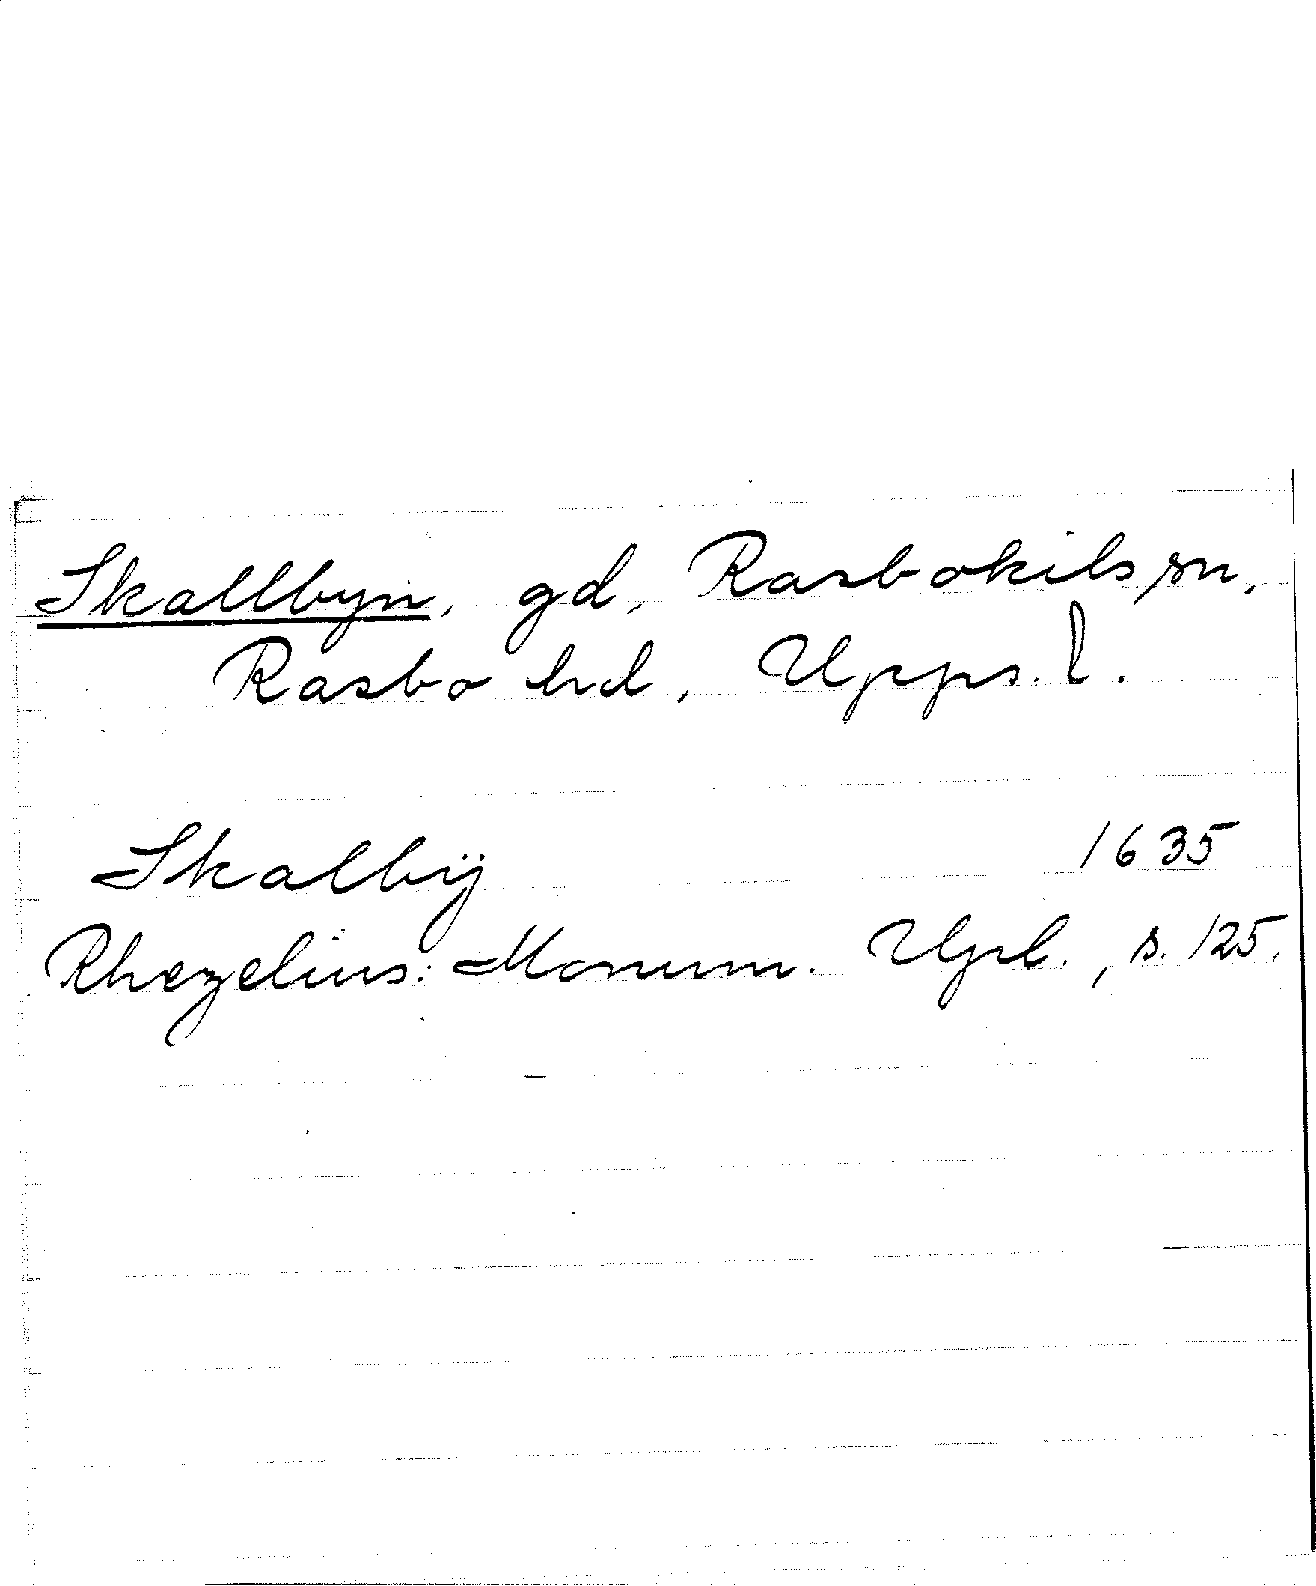 Skallbyn, gd, Rasbokils sn,
Rasbo hd, Upps. l.
Skalbÿ 1635
Rhezelius: Monum. Upl., s. 125.